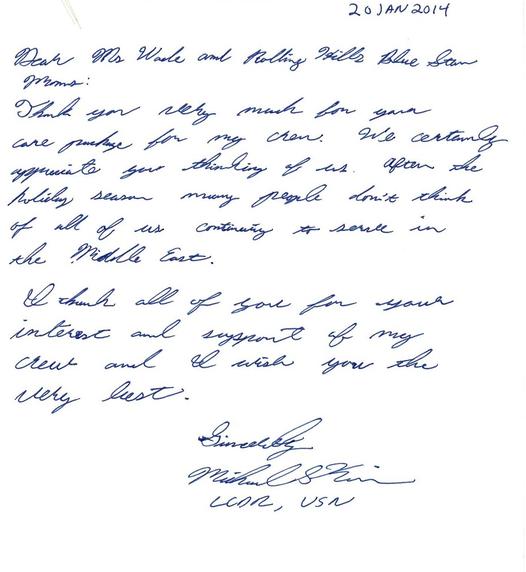 20 JAN 2014
Dear Ms Wade and Rolling Hills Blue Star
Moms:
Thank you very much for your
care package for my crew. We certainly
appreciate you thinking of us. After the
holiday season many people don't think
of all of us continuing to serve in
the Middle East.
I thank all of you for your
interest and support of my
crew and I wish you the
very best.
Sincerely
Michael S
LCDR, USN